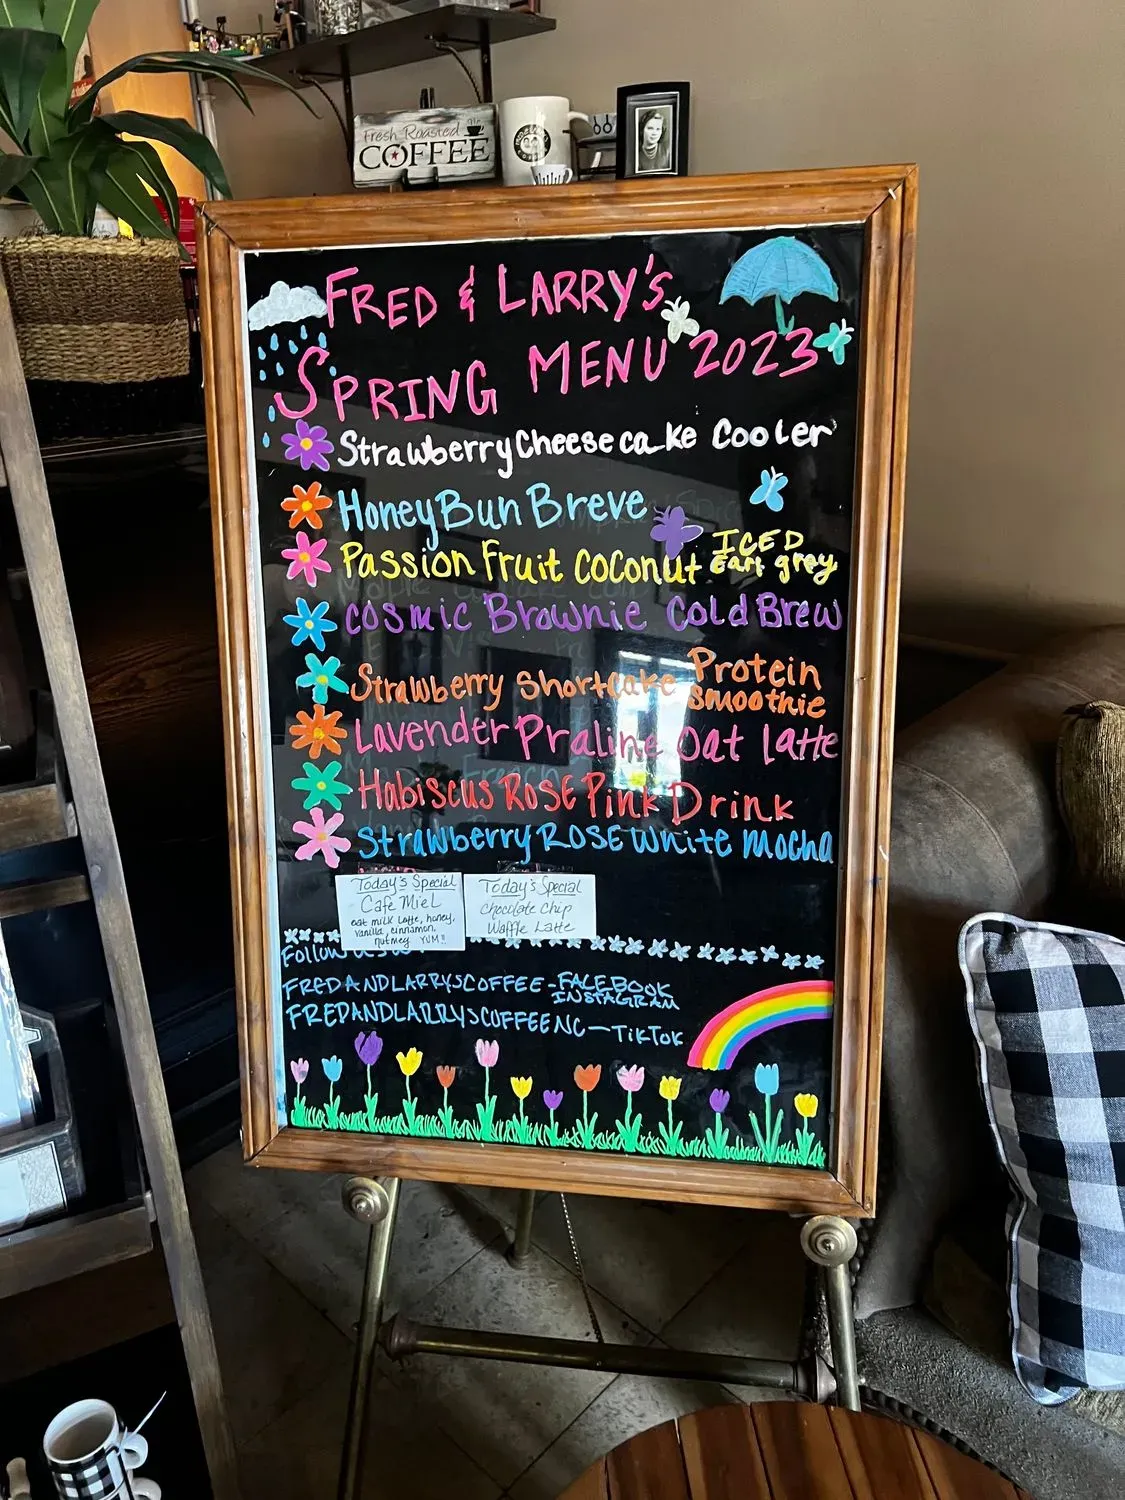 Fresh Roasted
COFFEE
FRED & LARRY'S
SPRING MENU 2023
Strawberry Cheesecake Cooler
Honey Bun Breve
Passion Fruit Coconut ICED Earl grey
Cosmic Brownie Cold Brew
Strawberry Shortcake Protein Smoothie
Lavender Praline Oat Latte
Habiscus ROSE Pink Drink
Strawberry ROSE White Mocha
Today's Special
Cafe Miel
oat milk latte, honey,
vanilla, cinnamon,
nutmeg YUM!!
Today's Special
Chocolate Chip
Waffle Latte
Follow
FREDANDLARRYSCOFFEE-FACEBOOK
INSTAGRAM
FREDANDLARRYSCOFFEENC-TIKTOK